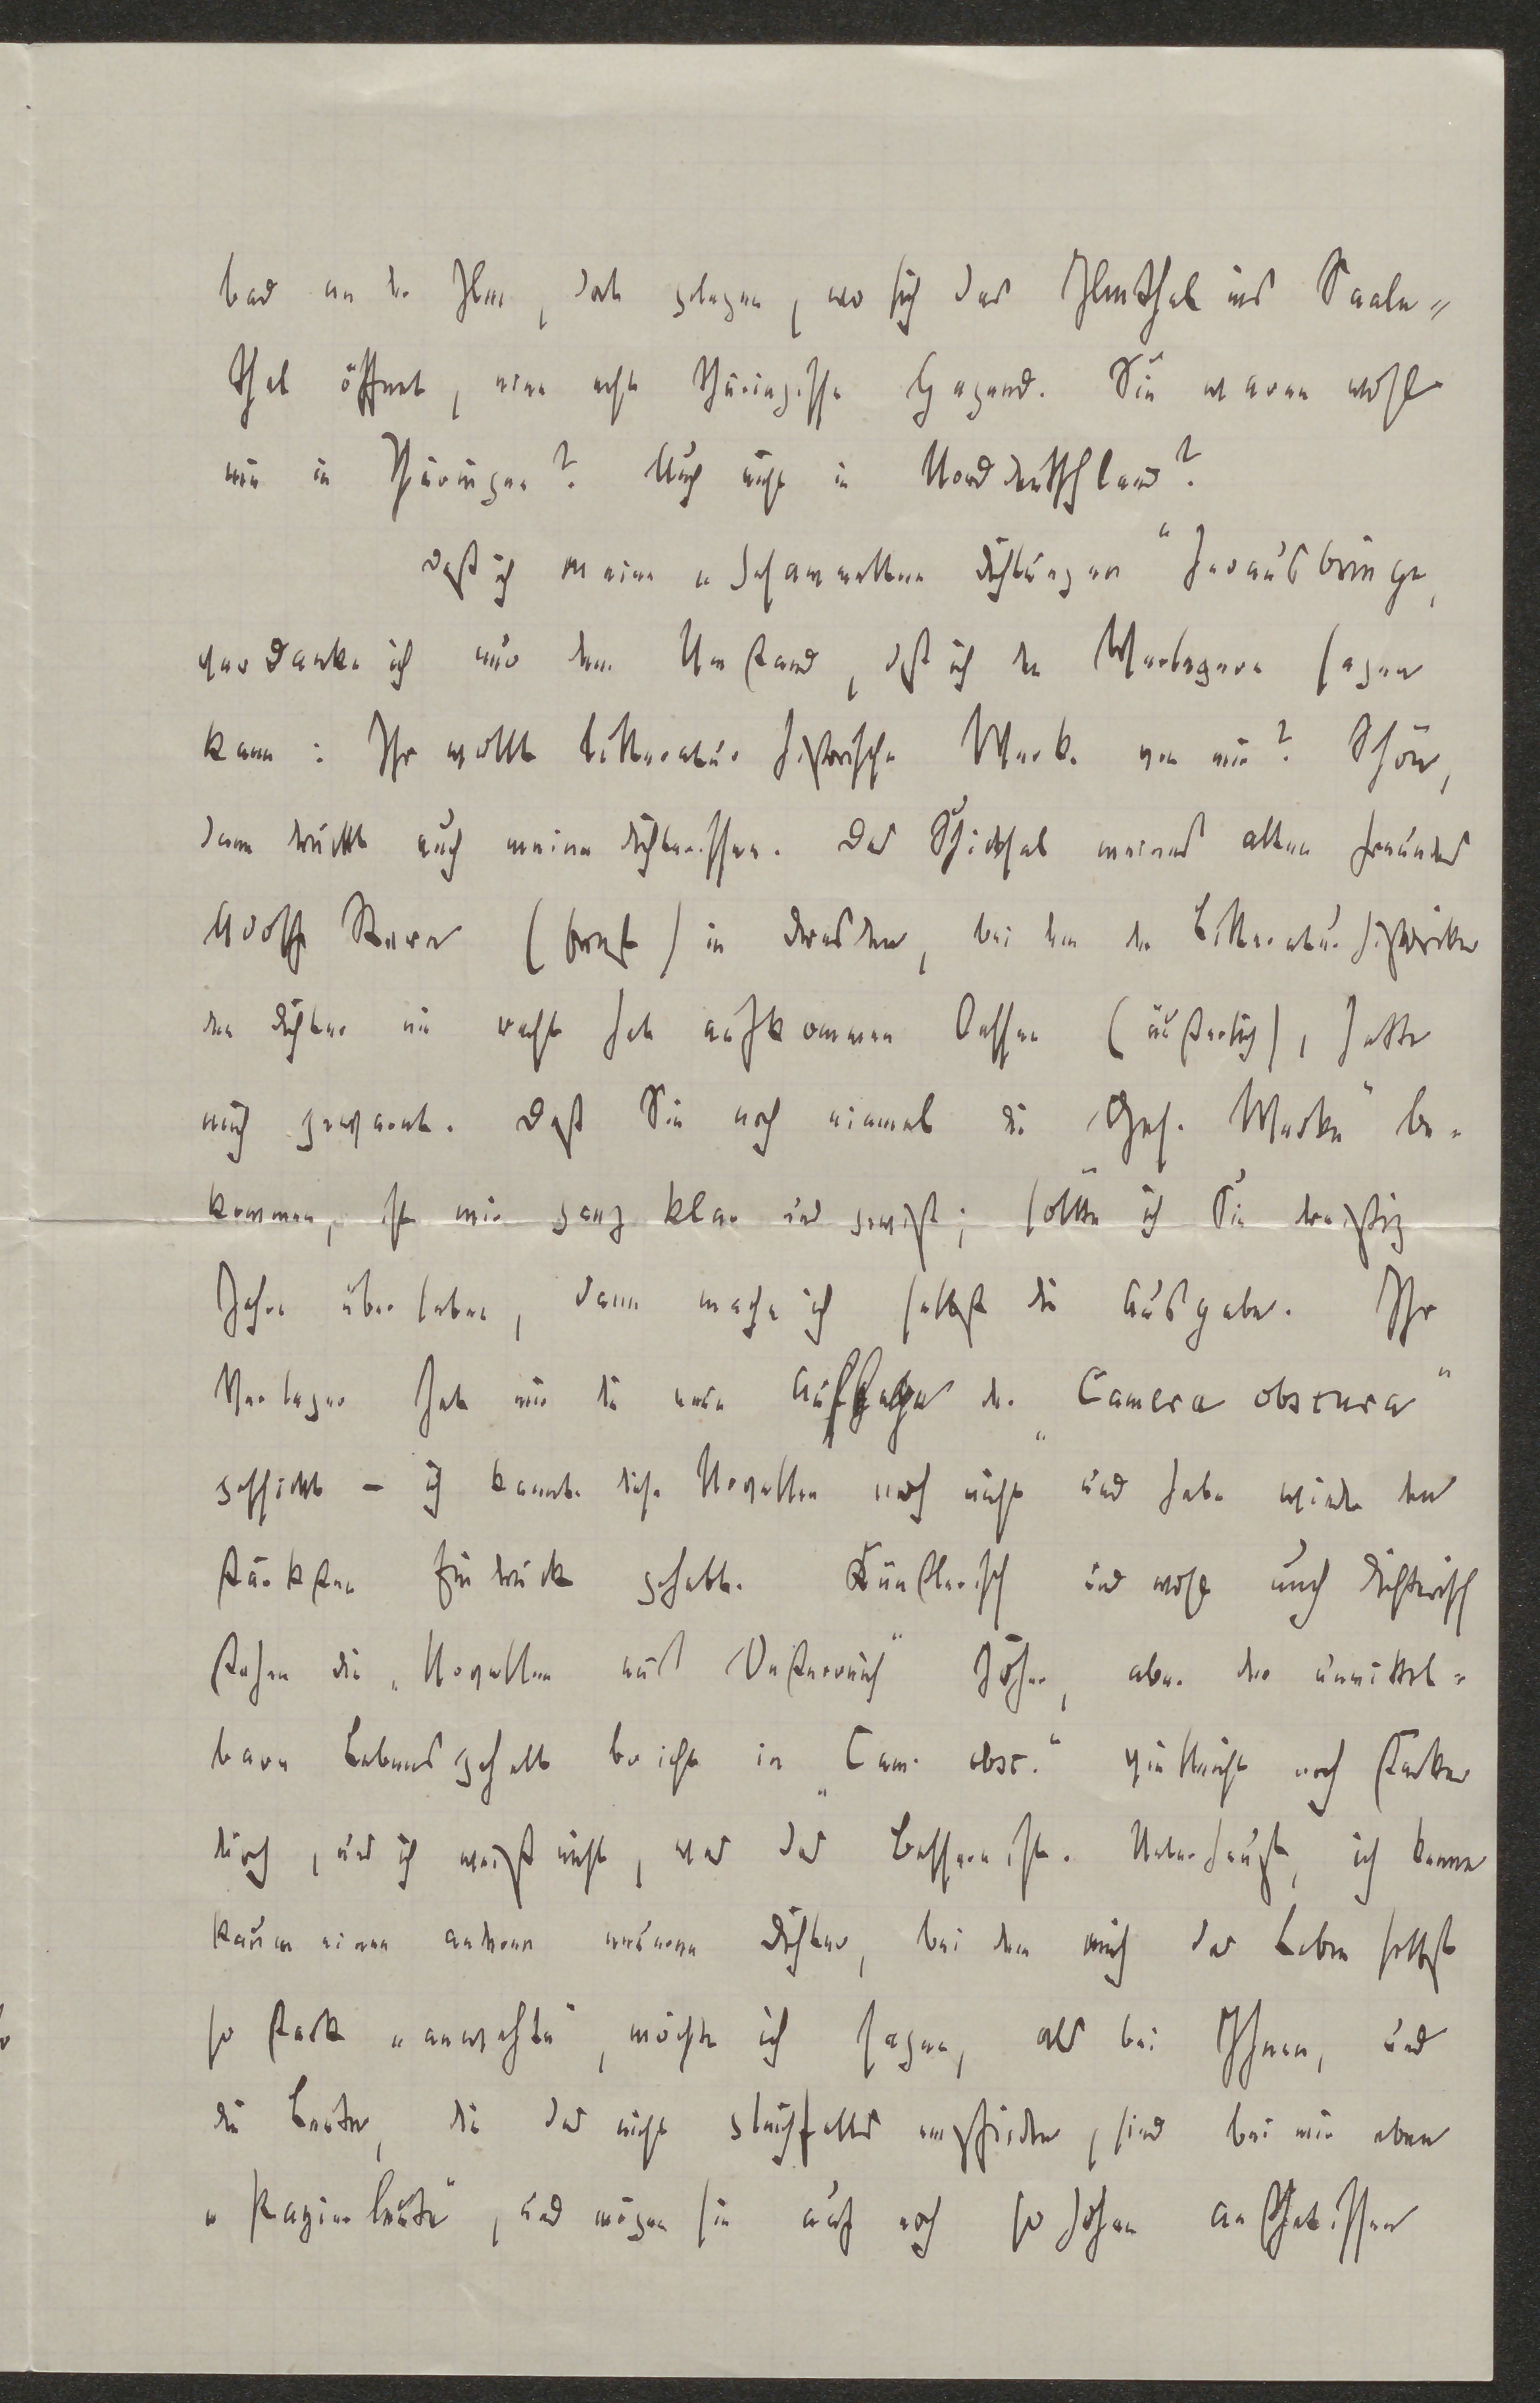 bad an der Ilm, dort gelegen, wo sich das Ilmthal ins Saale=
thal öffnet, eine echt thüringische Gegend. Sie waren wohl
nie in Thüringen? Auch nicht in Norddeutschland?
Daß ich meine „Gesammelten Dichtungen“ herausbringe,
verdanke ich nur dem Umstand, daß ich den Verlegern sagen
kann: Ihr wollt litteraturhistorische Werke von mir? Schön,
dann druckt auch meine dichterischen. Das Schicksal meines alten Freundes
Adolf Stern (Ernst) in Dresden, bei dem der Litteraturhistoriker
den Dichter nie recht hat aufkommen lassen (äußerlich), hatte
mich gewarnt. Daß Sie noch einmal die „Ges. Werke“ be=
kommen, ist mir ganz klar und gewiß; sollte ich Sie dreißig
Jahre überleben, dann mache ich selbst die Ausgabe. Ihr
Verleger hat mir die neue Auflage der „Camera obscura“
geschickt – ich kannte diese Novellen noch nicht und habe wieder den
stärksten Eindruck gehabt. Künstlerisch und wohl auch dichterisch
stehen die „Novellen aus Oesterreich“ höher, aber der unmittel=
bare Lebensgehalt bricht in „Cam. obsc.“ vielleicht noch stärker
durch, und ich weiß nicht, was das Bessere ist. Ueberhaupt, ich kenne
kaum einen anderen neueren Dichter, bei dem mich das Leben selbst
so stark „anwehte“, möchte ich sagen, als bei Ihnen, und
die Leute, die das nicht gleichfalls empfinden, sind bei mir eben
„Papierleute“, und mögen sie auch noch so hohen ästhetischen